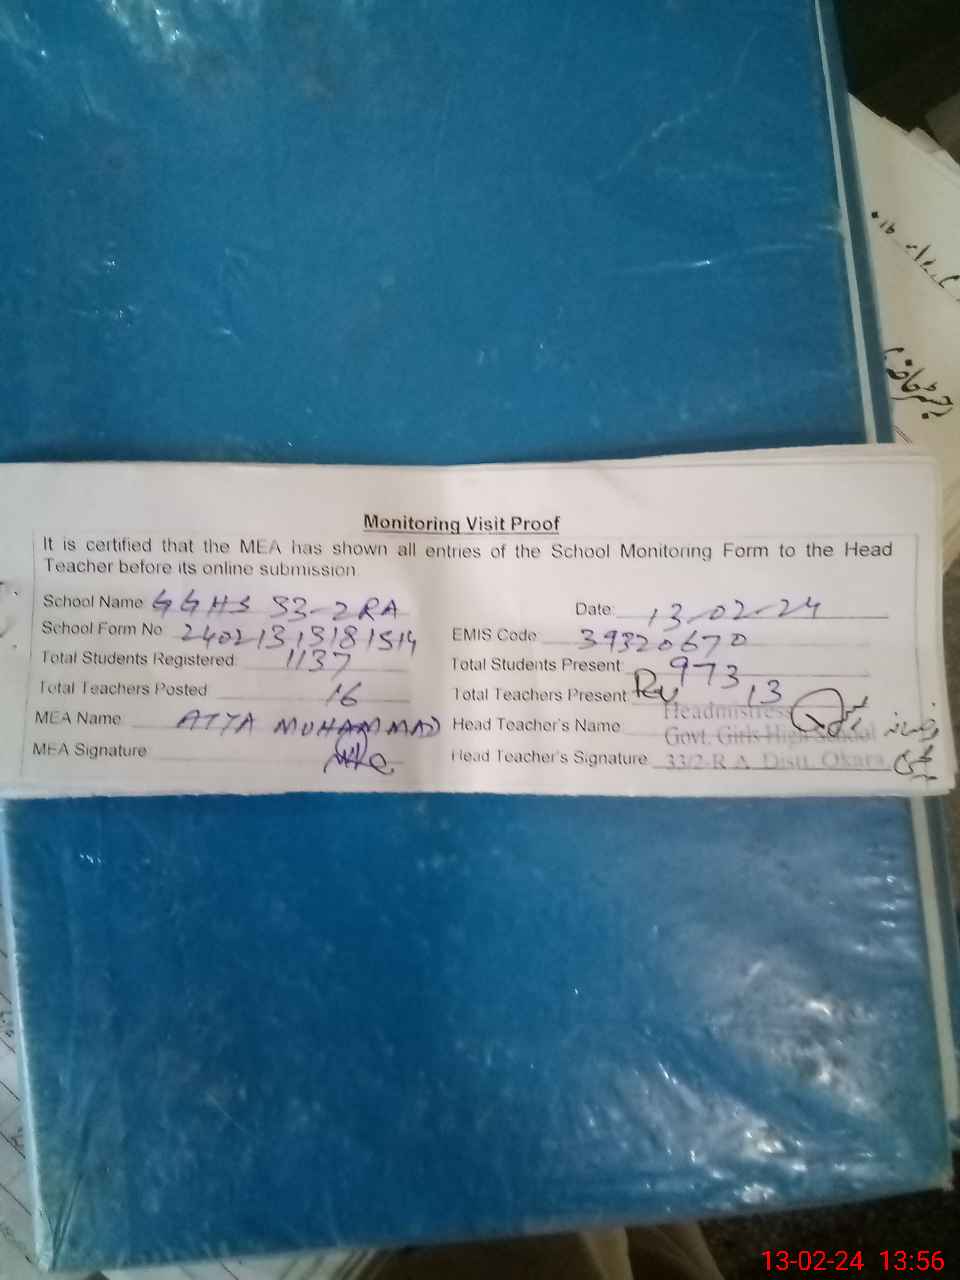 رجسٹر حاضری
Monitoring Visit Proof
It is certified that the MEA has shown all entries of the School Monitoring Form to the Head
Teacher before its online submission.
School Name GGHS 33-2RA Date: 13-02-24
School Form No 2402131318 1514 EMIS Code 39320670
Total Students Registered: 1137 Total Students Present: 973
Total Teachers Posted 16 Total Teachers Present: 13
MEA Name ATTA MUHAMMAD Head Teacher's Name
Headmistress
Govt. Girls High School
MEA Signature Head Teacher's Signature 33/2-R A Distt. Okara
13-02-24 13:56